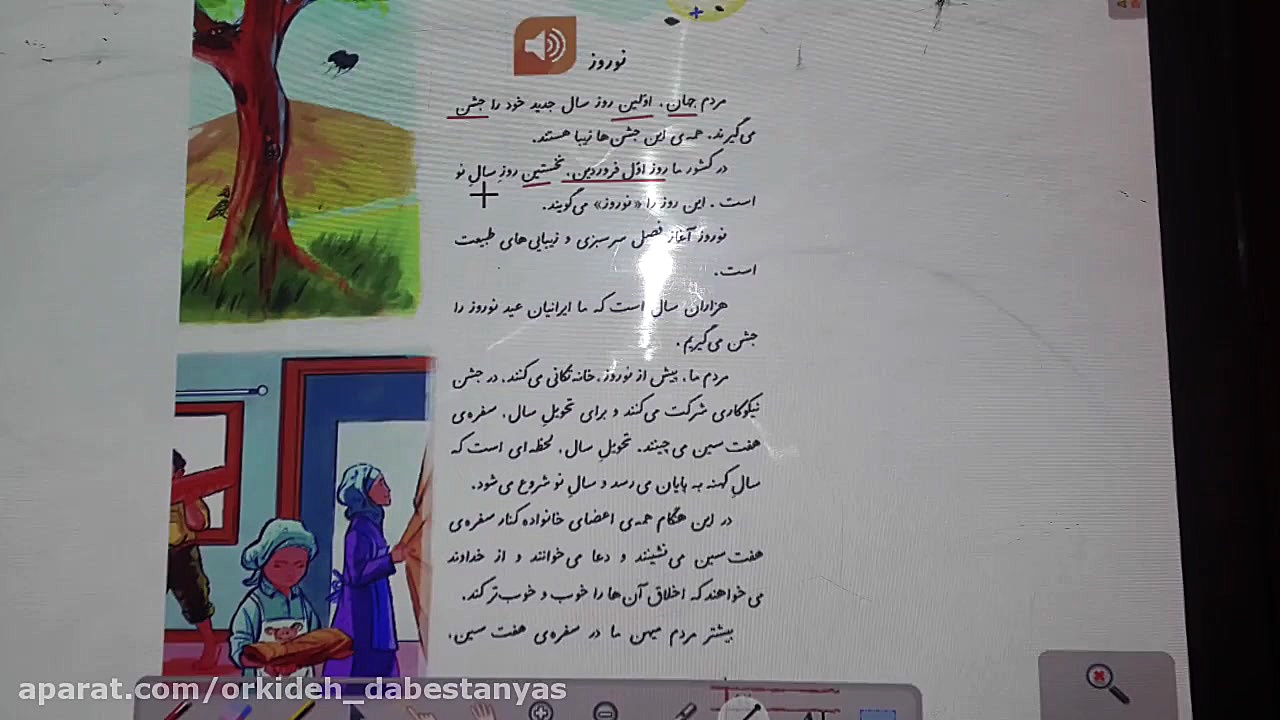 نوروز
مردم جهان، اوّلین روز سال جدید خود را جشن
می‌گیرند. همه‌ی این جشن‌ها زیبا هستند.
در کشور ما روز اوّل فروردین، نخستین روزِ سالِ نو
است. این روز را «نوروز» می‌گویند.
نوروز آغاز فصل سرسبزی و زیبایی‌های طبیعت
است.
هزاران سال است که ما ایرانیان عید نوروز را
جشن می‌گیریم.
مردم ما، پیش از نوروز، خانه تکانی می‌کنند، در جشن
نیکوکاری شرکت می‌کنند و برای تحویلِ سال، سفره‌ی
هفت سین می‌چینند. تحویلِ سال، لحظه‌ای است که
سالِ کهنه به پایان می‌رسد و سالِ نو شروع می‌شود.
در این هنگام همه‌ی اعضای خانواده کنار سفره‌ی
هفت سین می‌نشینند و دعا می‌خوانند و از خداوند
می‌خواهند که اخلاق آن‌ها را خوب و خوب‌تر کند.
بیشتر مردم میهن ما در سفره‌ی هفت سین،
aparat.com/orkideh_dabestanyas